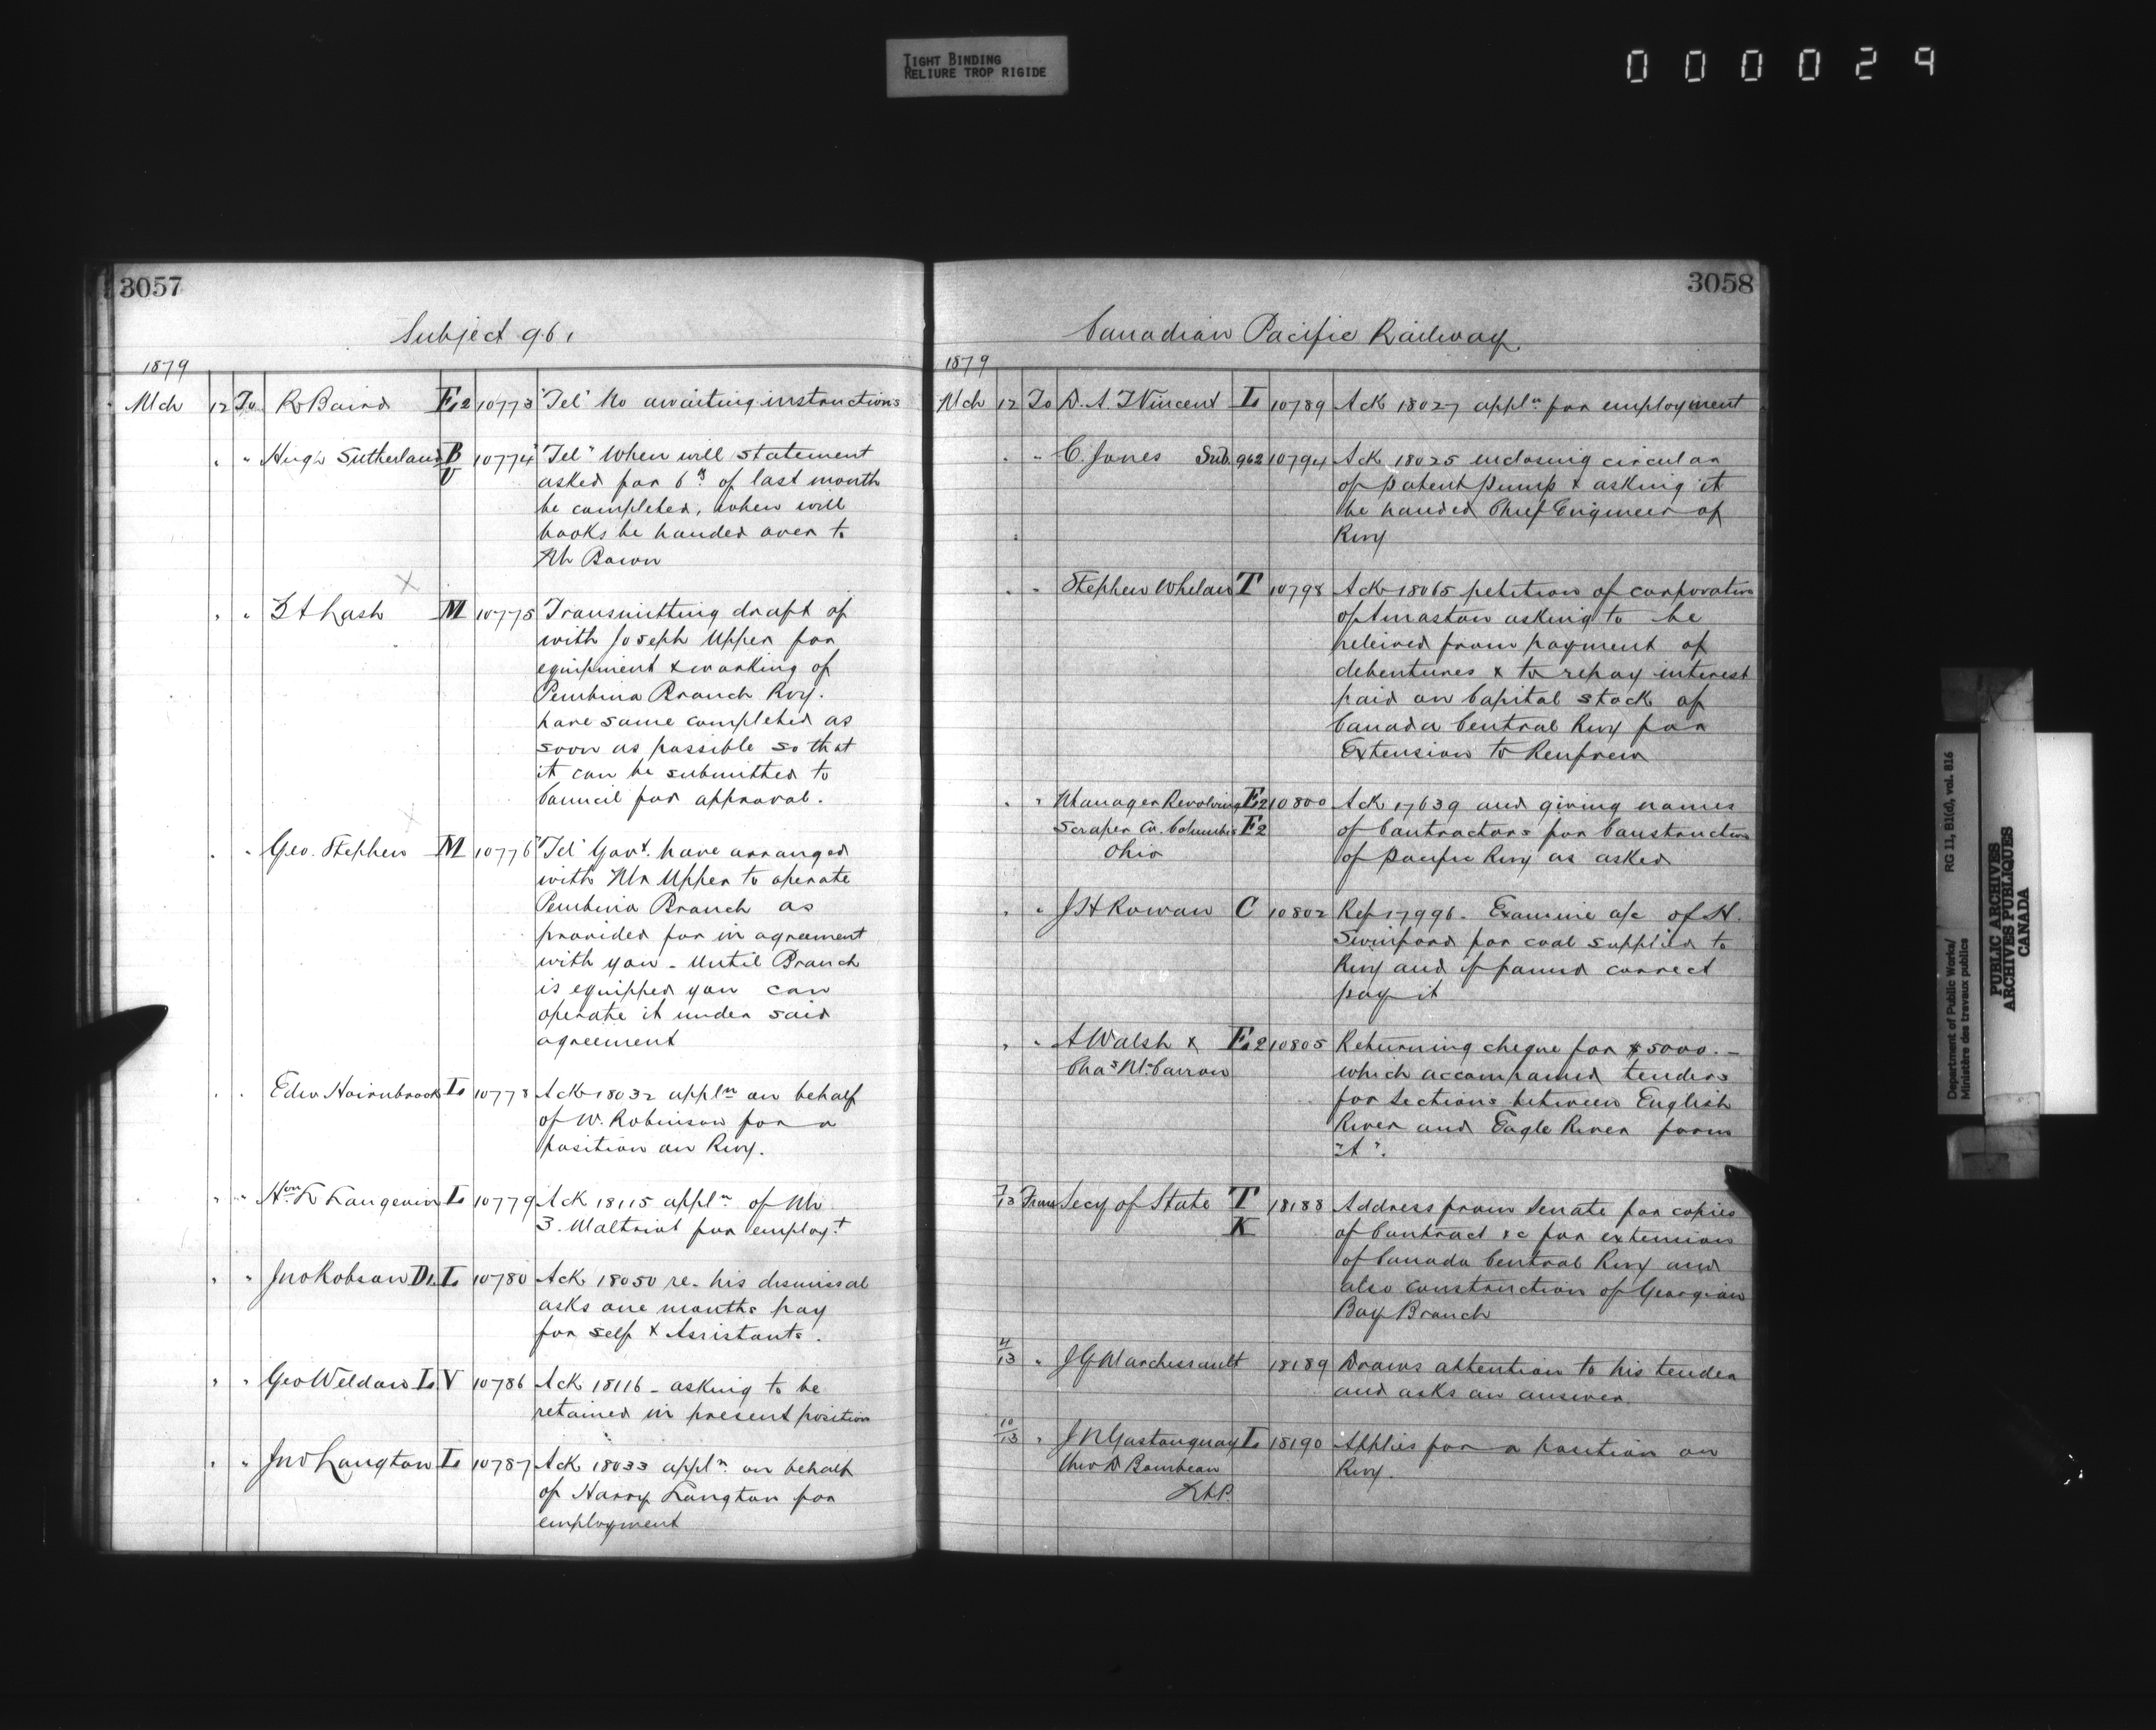 TIGHT BINDING
RELIURE TROP RIGIDE
000029
3057
Subject 961
1879
Mch 12 To R Baird E2 10773 "Tel" No awaiting instructions
" " Hugh Sutherland B V 10774 "Tel" When will statement
asked for 6th of last month
be completed, when will
books be handed over to
Mr Bown
" " Z A Lash M 10775 Transmitting draft of
with Joseph Upper for
equipment & working of
Pembina Branch Rwy.
have same completed as
soon as possible so that
it can be submitted to
Council for approval.
" " Geo. Stephen M 10776 "Tel" Govt. have arranged
with Mr Upper to operate
Pembina Branch as
provided for in agreement
with you - Until Branch
is equipped you can
operate it under said
agreement
" " Edw Hairnbrook L 10778 Ack 18032 appln on behalf
of W. Robinson for a
position on Rwy.
" " Hon L Langevin L 10779 Ack 18115 appln of Mr
3. Maltriot for employt
" " Jno Robson D1 L 10780 Ack 18050 re- his dismissal
asks one months pay
for self & Assistants.
" " Geo Weldon L V 10786 Ack 18116 - asking to be
retained in present position
" " Jno Langton L 10787 Ack 18033 appln. on behalf
of Harry Langton for
employment
3058
Canadian Pacific Railway
1879
Mch 12 To D. A. T Vincent L 10789 Ack 18027 appln for employment
" " C. Jones Sub. 962 10794 Ack 18025 enclosing circular
of patent pump & asking it
be handed Chief Engineer of
Rwy
" " Stephen Whelan T 10798 Ack 18065 petition of corporation
of Arnaston asking to be
releived from payment of
debentures & to repay interest
paid on Capital stock of
Canada Central Rwy for
Extension to Renfrew
" " Manager Revolving E2 10800 Ack 17639 and giving names
Scraper Co. Columbus F2 of Contractors for Construction
Ohio of Pacific Rwy as asked
" " J H Rowan C 10802 Ref 17996 - Examine a/c of H.
Swinford for coal supplied to
Rwy and if found correct
pay it
" " A Walsh & E2 10805 Returning cheque for $5000.-
Chas McCarron which accompanied tenders
for sections between English
River and Eagle River form
"A".
7/13 From Secy of State T 18188 Address from Senate for copies
K of Contract &c for extension
of Canada Central Rwy and
also construction of Georgian
Bay Branch
4/13 " J G Marchessault 18189 Draws attention to his tender
and asks an answer.
10/13 " J N Gastonguay L 18190 Applies for a position on
Theo D Bourbeau Rwy.
Department of Public Works/ RG 11, B1(d), vol. 816
Ministère des travaux publics
PUBLIC ARCHIVES
ARCHIVES PUBLIQUES
CANADA